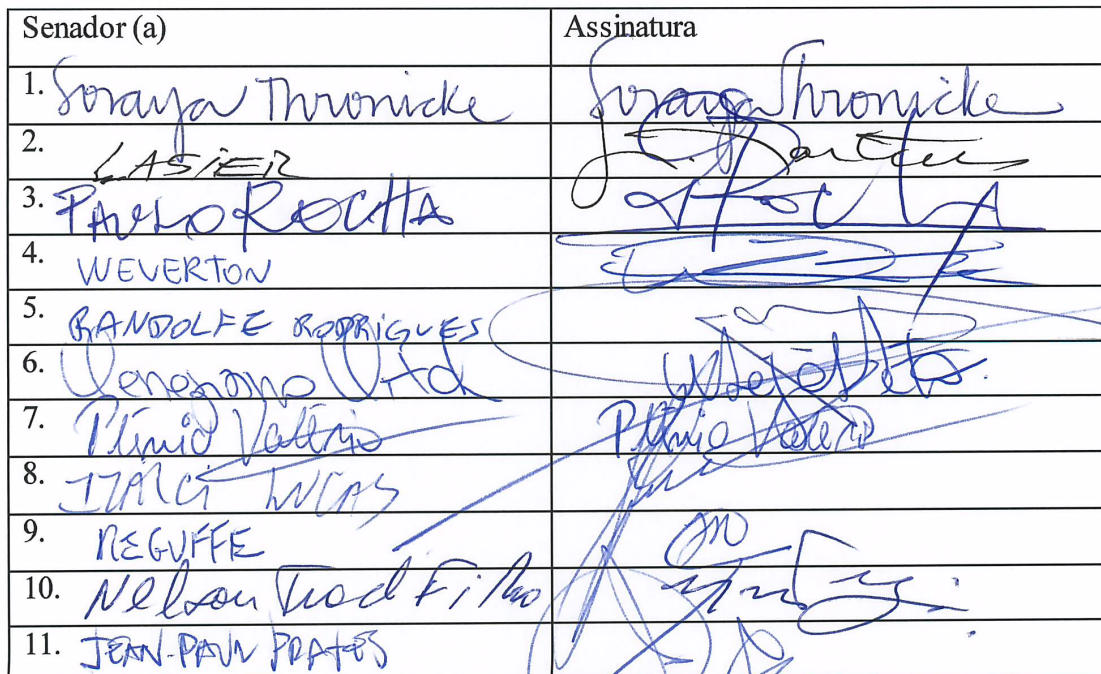 Senador (a) Assinatura
1. Soraya Thronicke Soraya Thronicke
2. LASIER L. Martins
3. PAULO ROCHA PROCHA
4. WEVERTON
5. RANDOLFE RODRIGUES
6. Veneziano Vital
7. Plínio Valério Plínio Valério
8. IZALCI LUCAS
9. REGUFFE
10. Nelson Trad Filho
11. JEAN-PAUL PRATES